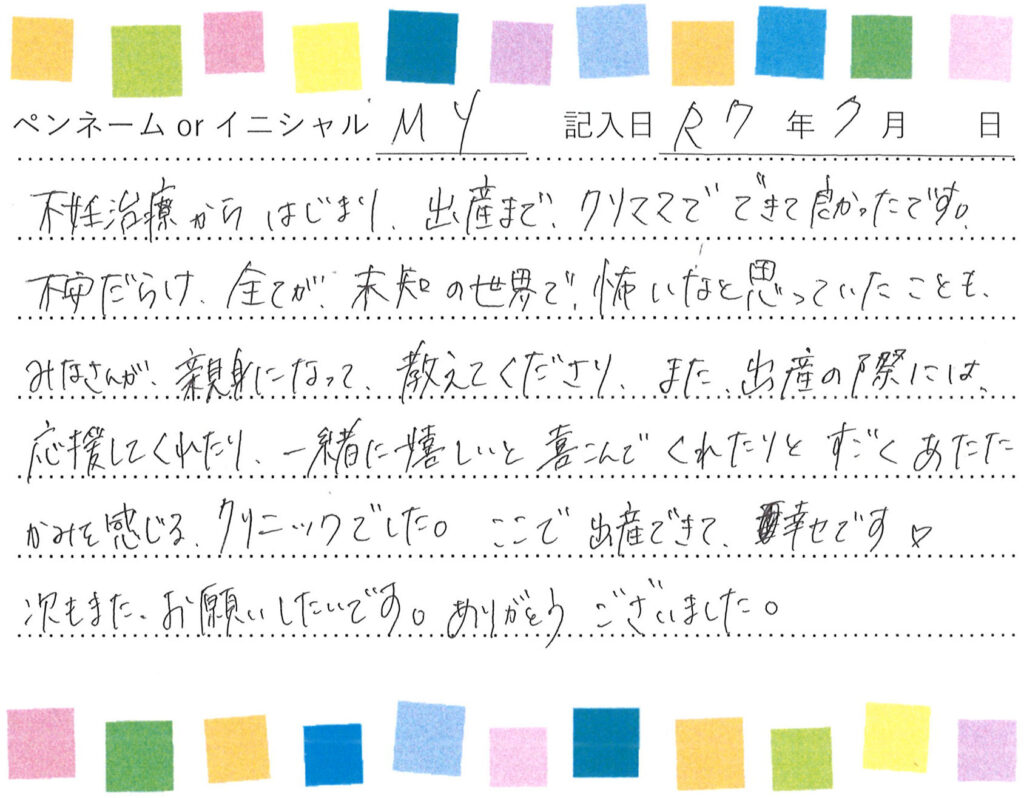 ペンネーム or イニシャル M Y 記入日 R7年7月 日
不妊治療からはじまり、出産まで、クリママでできて良かったです。
不安だらけ、全てが、未知の世界で、怖いなと思っていたことも、
みなさんが、親身になって、教えてくださり、また、出産の際には、
応援してくれたり、一緒に嬉しいと喜こんでくれたりとすごくあたた
かみを感じる、クリニックでした。ここで出産できて、幸せです♡
次もまた、お願いしたいです。ありがとうございました。